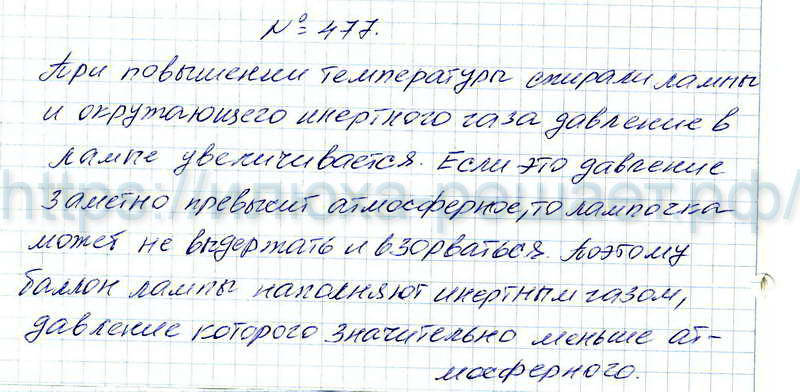 № 477.
При повышении температуры спирали лампы
и окружающего инертного газа давление в
лампе увеличивается. Если это давление
заметно превысит атмосферное, то лампочка
может не выдержать и взорваться. Поэтому
баллон лампы наполняют инертным газом,
давление которого значительно меньше ат-
мосферного.
http://илюха-решает.рф/